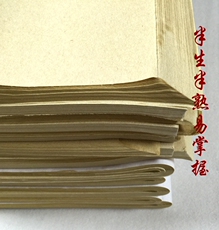 半生半熟易掌握